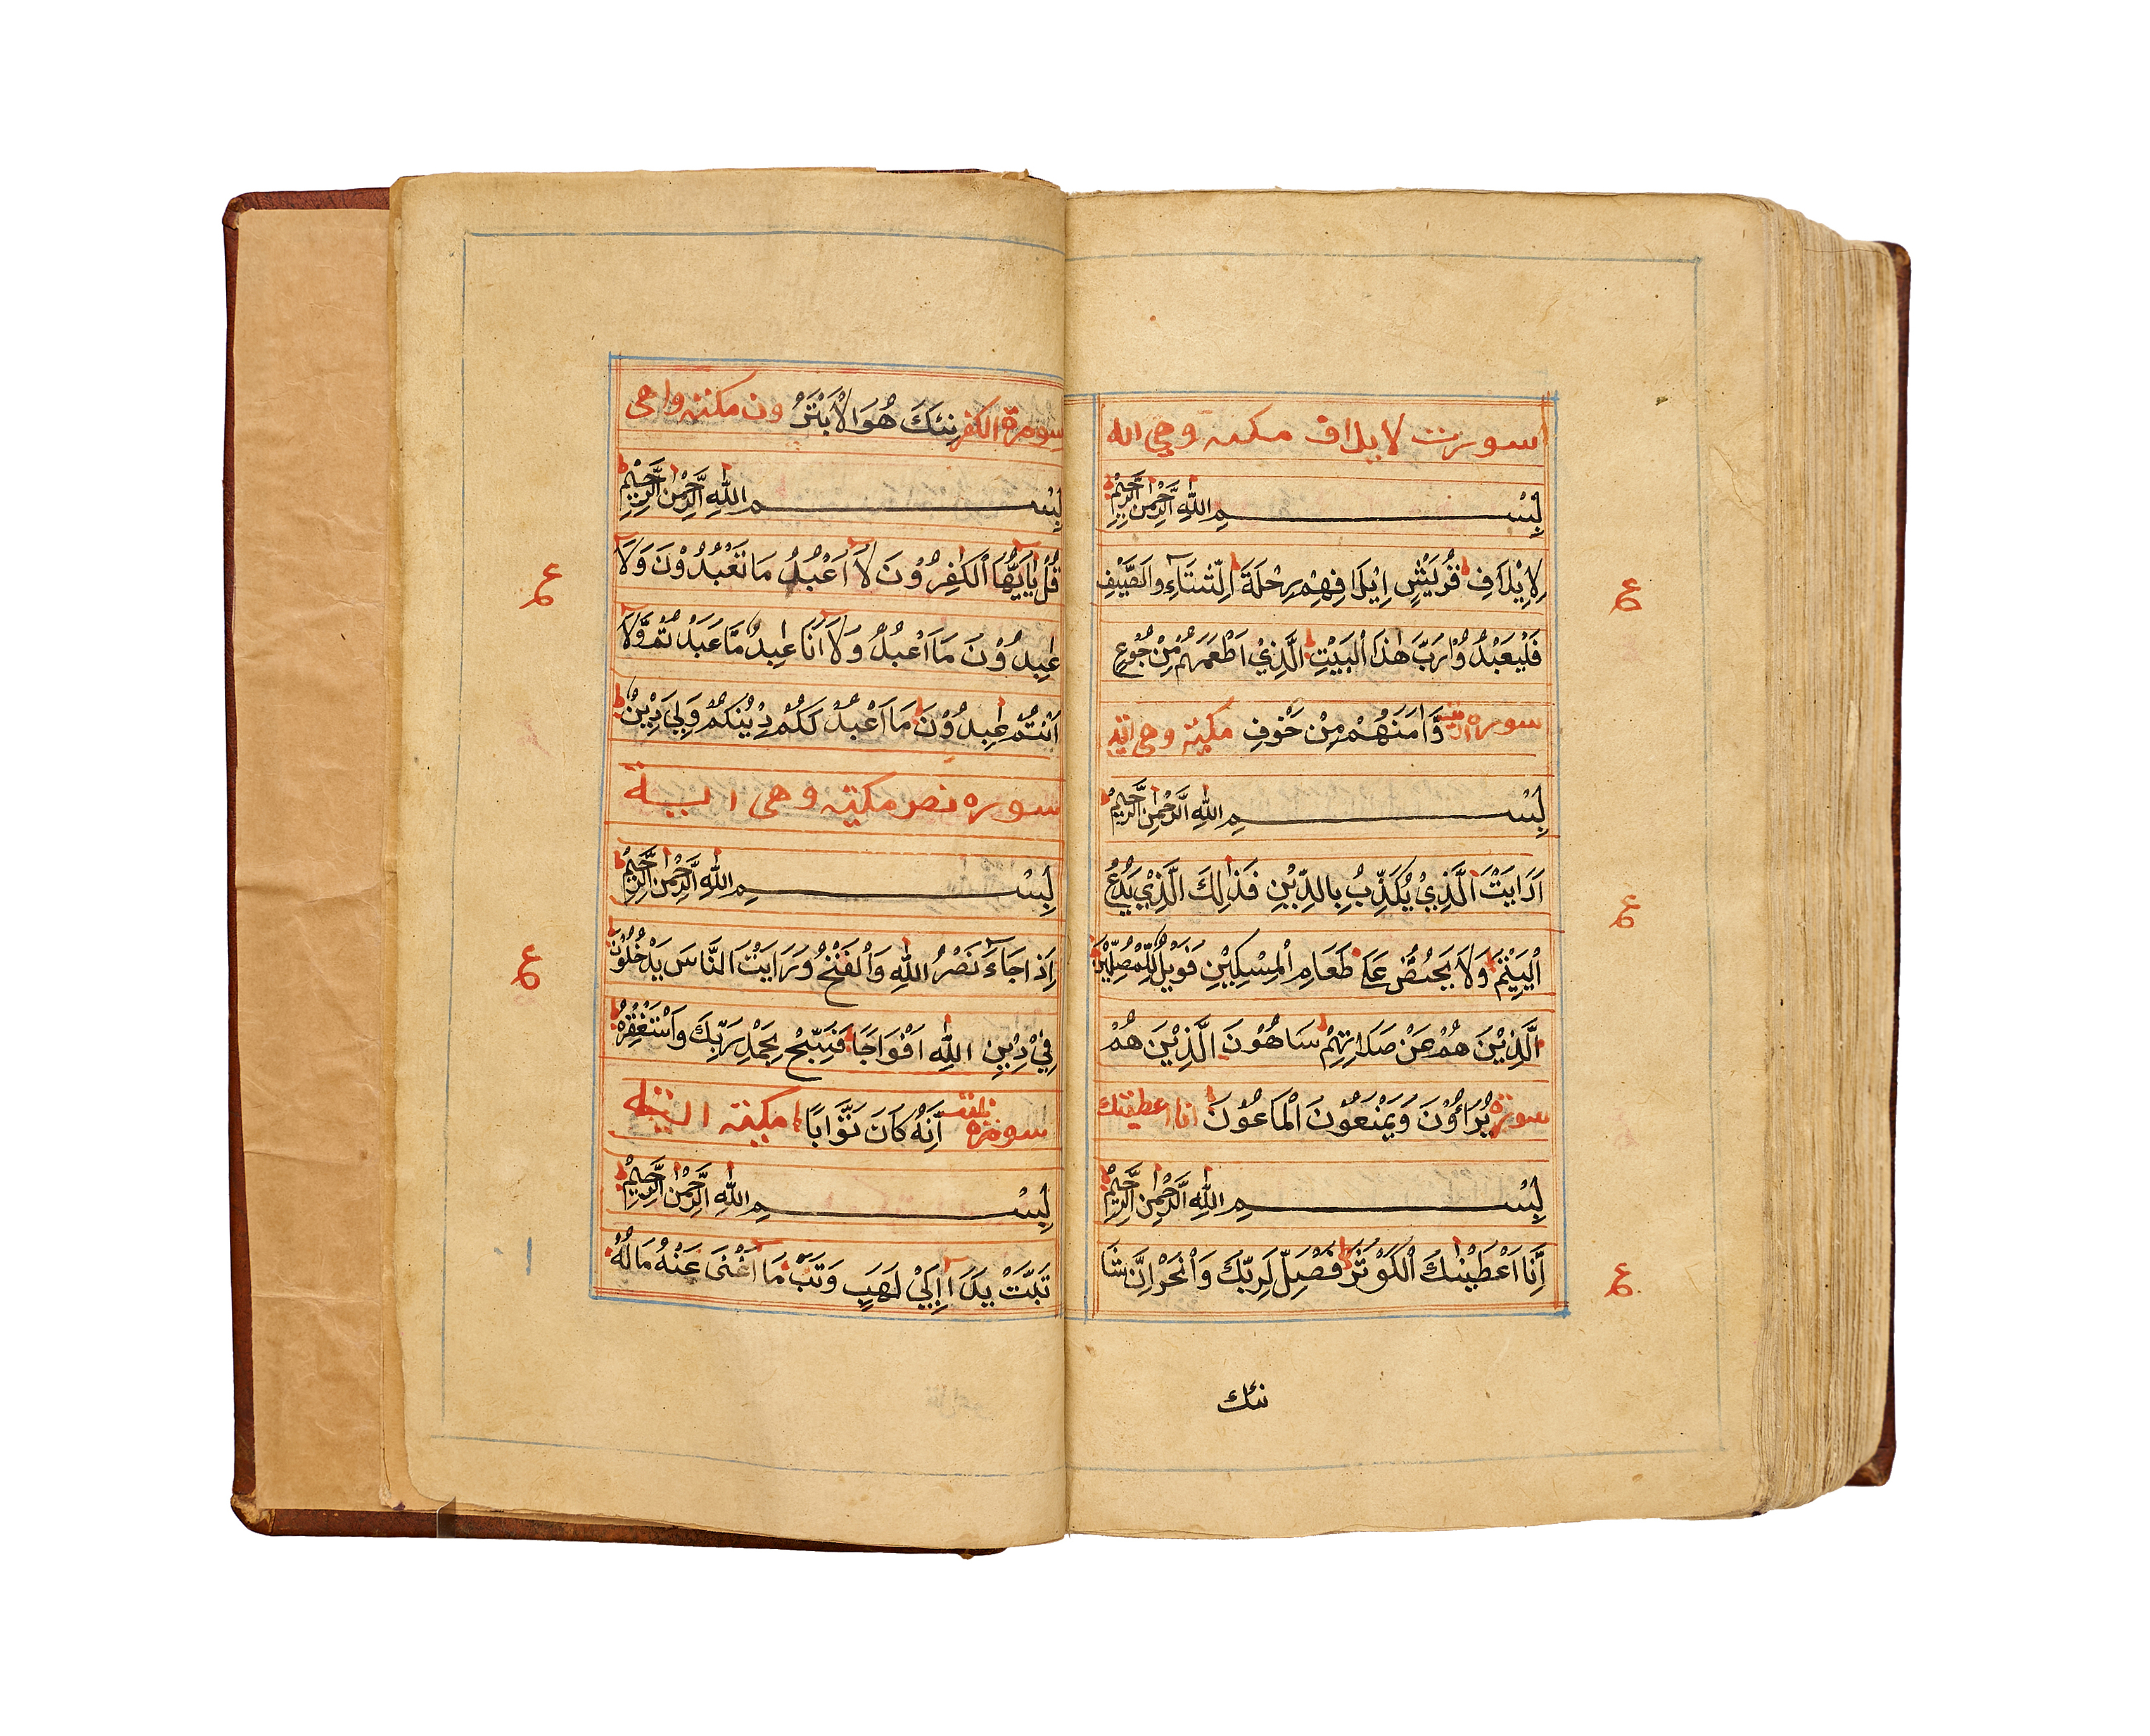 سورت لايلاف مكية وهي اله
بِسْمِ اللهِ الرَّحْمٰنِ الرَّحِيْمِ
لِاِيْلَافِ قُرَيْشٍ اِيْلَافِهِمْ رِحْلَةَ الشِّتَاءِ وَالصَّيْفِ
ع
فَلْيَعْبُدُوْا رَبَّ هٰذَا الْبَيْتِ الَّذِيْ اَطْعَمَهُمْ مِنْ جُوْعٍ
سوره وَّاٰمَنَهُمْ مِنْ خَوْفٍ مكية وهي
بِسْمِ اللهِ الرَّحْمٰنِ الرَّحِيْمِ
اَرَاَيْتَ الَّذِيْ يُكَذِّبُ بِالدِّيْنِ فَذٰلِكَ الَّذِيْ يَدُعُّ
ع
الْيَتِيْمَ وَلَا يَحُضُّ عَلٰى طَعَامِ الْمِسْكِيْنِ فَوَيْلٌ لِّلْمُصَلِّيْنَ
الَّذِيْنَ هُمْ عَنْ صَلَاتِهِمْ سَاهُوْنَ الَّذِيْنَ هُمْ
سورة يُرَاؤُنَ وَيَمْنَعُوْنَ الْمَاعُوْنَ انا اعطينك
بِسْمِ اللهِ الرَّحْمٰنِ الرَّحِيْمِ
اِنَّا اَعْطَيْنٰكَ الْكَوْثَرَ فَصَلِّ لِرَبِّكَ وَانْحَرْ اِنَّ شَا
ع
نئك
سورة الكفر نِئَكَ هُوَ الْاَبْتَرُ ون مكية وهي
بِسْمِ اللهِ الرَّحْمٰنِ الرَّحِيْمِ
قُلْ يٰاَيُّهَا الْكٰفِرُوْنَ لَا اَعْبُدُ مَا تَعْبُدُوْنَ وَلَا
ع
عٰبِدُوْنَ مَا اَعْبُدُ وَلَا اَنَا عٰبِدٌ مَّا عَبَدْتُمْ وَّلَا
اَنْتُمْ عٰبِدُوْنَ مَا اَعْبُدُ لَكُمْ دِيْنُكُمْ وَلِيَ دِيْنِ
سوره نصر مكية وهي
بِسْمِ اللهِ الرَّحْمٰنِ الرَّحِيْمِ
اِذَا جَاءَ نَصْرُ اللهِ وَالْفَتْحُ وَرَاَيْتَ النَّاسَ يَدْخُلُوْنَ
ع
فِيْ دِيْنِ اللهِ اَفْوَاجًا فَسَبِّحْ بِحَمْدِ رَبِّكَ وَاسْتَغْفِرْهُ
سورة اِنَّهُ كَانَ تَوَّابًا مكية
بِسْمِ اللهِ الرَّحْمٰنِ الرَّحِيْمِ
تَبَّتْ يَدَا اَبِيْ لَهَبٍ وَتَبَّ مَا اَغْنٰى عَنْهُ مَالُهُ